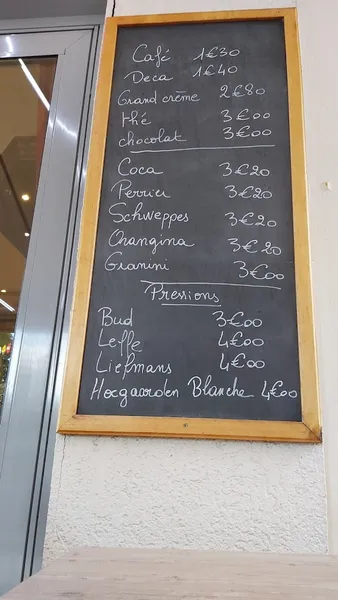 Café 1€30
Deca 1€40
Grand crème 2€80
thé 3€00
chocolat 3€00
Coca 3€20
Perrier 3€20
Schweppes 3€20
Orangina 3€20
Granini 3€00
Pressions
Bud 3€00
Leffe 4€00
Liefmans 4€00
Hoegaarden Blanche 4€00